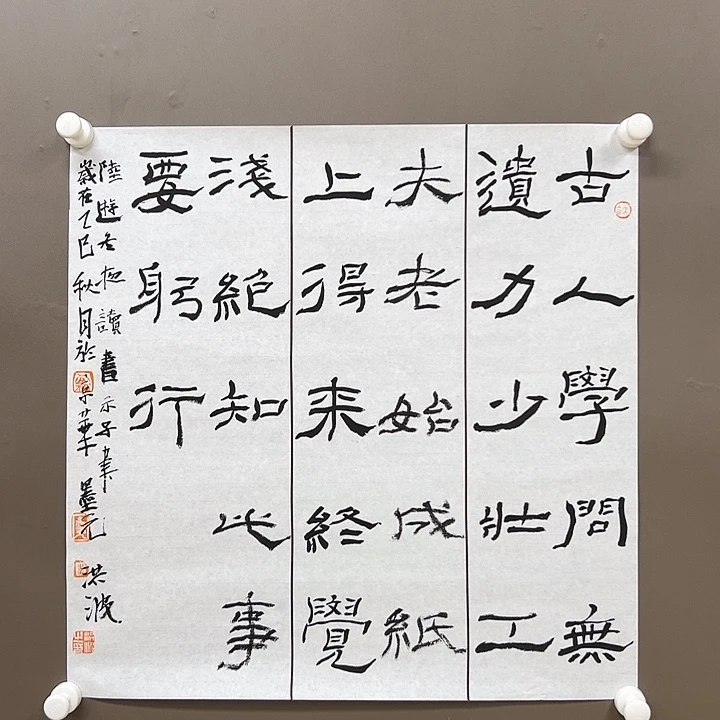 古人學問無
遺力少壯工
夫老始成紙
上得来終覺
淺絕知此事
要躬行
陸遊冬夜讀書示子聿
歲在乙巳秋月於京華墨元 洪波